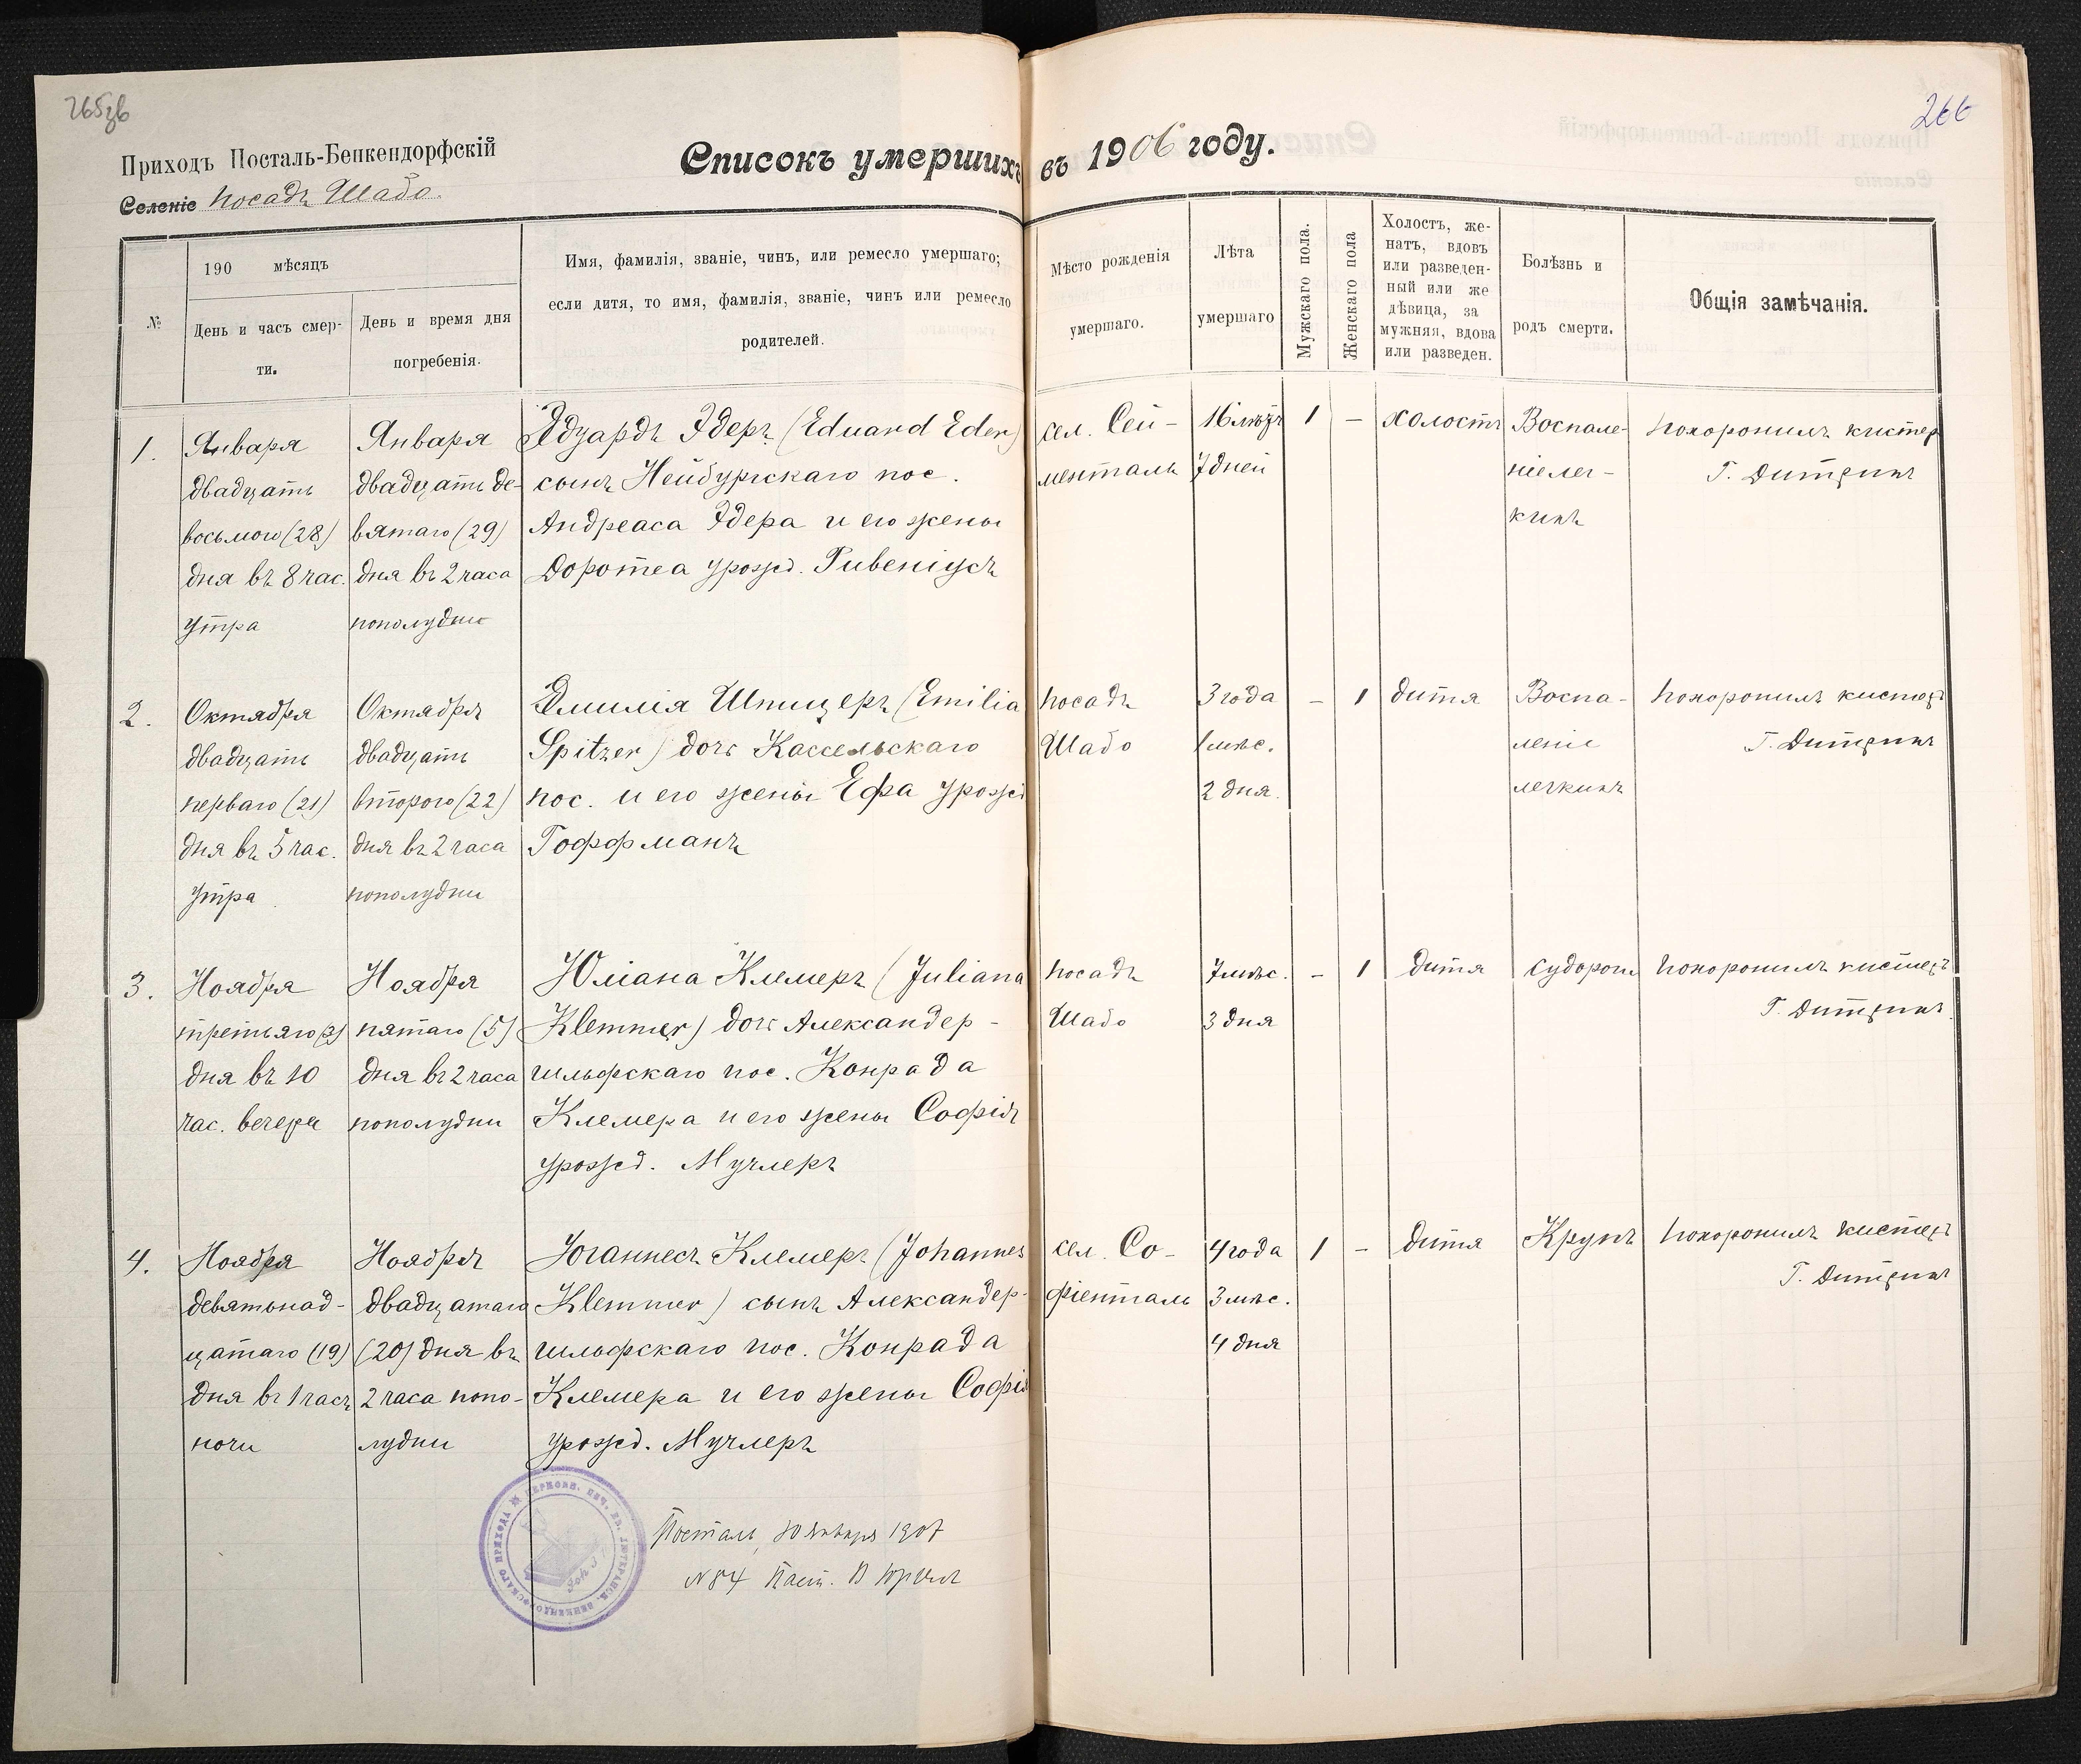 265зв
266
Приходъ Посталь-Бенкендорфскій
Селеніе посадъ Шабо.
Списокъ умершихъ въ 1906 году.
№
190 мѣсяцъ
День и часъ смер-
ти.
День и время дня
погребенія.
Имя, фамилія, званіе, чинъ, или ремесло умершаго;
если дитя, то имя, фамилія, званіе, чинъ или ремесло
родителей.
Мѣсто рожденія
умершаго.
Лѣта
умершаго
Мужскаго пола.
Женскаго пола
Холостъ, же-
натъ, вдовъ
или разведен-
ный или же
дѣвица, за
мужняя, вдова
или разведен.
Болѣзнь и
родъ смерти.
Общія замѣчанія.
1.
Января
двадцать
восьмого (28)
дня въ 8 час.
утра
Января
двадцать де-
вятаго (29)
дня въ 2 часа
пополудни
Эдуардъ Эдеръ (Eduard Eder)
сынъ Нейбургскаго пос.
Андреаса Эдера и его жены
Доротеа урожд. Гибеніусъ
сел. Сей-
менталь
16 лѣтъ
7 дней
1
-
холостъ
Воспале-
ніе лег-
кихъ
похоронилъ кистеръ
Г. Дитрихъ
2.
Октября
двадцать
перваго (21)
дня въ 5 час.
утра
Октября
двадцать
второго (22)
дня въ 2 часа
пополудни
Эмилія Шпицеръ (Emilia
Spitzer) дочь Кассельскаго
пос. и его жены Ефа урожд
Гоффманъ
посадъ
Шабо
3 года
1 мѣс.
2 дня.
-
1
дитя
Воспа-
леніе
легкихъ
похоронилъ кистеръ
Г. Дитрихъ
3.
Ноября
третьяго (3)
дня въ 10
час. вечера
Ноября
пятаго (5)
дня въ 2 часа
пополудни
Юліана Клемеръ (Juliana
Klemmer) дочь Александер-
гильфскаго пос. Конрада
Клемера и его жены Софія
урожд. Мучлеръ
посадъ
Шабо
7 мѣс.
3 дня
-
1
дитя
судороги
похоронилъ кистеръ
Г. Дитрихъ
4.
Ноября
девятьнад-
цатаго (19)
дня въ 1 часъ
ночи
Ноября
двадцатаго
(20) дня въ
2 часа попо-
лудни
Юганнесъ Клемеръ (Johannes
Klemmer) сынъ Александер-
гильфскаго пос. Конрада
Клемера и его жены Софія
урожд. Мучлеръ
сел. Со-
фіенталь
4 года
3 мѣс.
4 дня
1
-
дитя
Крупъ
похоронилъ кистеръ
Г. Дитрихъ
Посталь, 10 января 1907
№ 84 Паст.